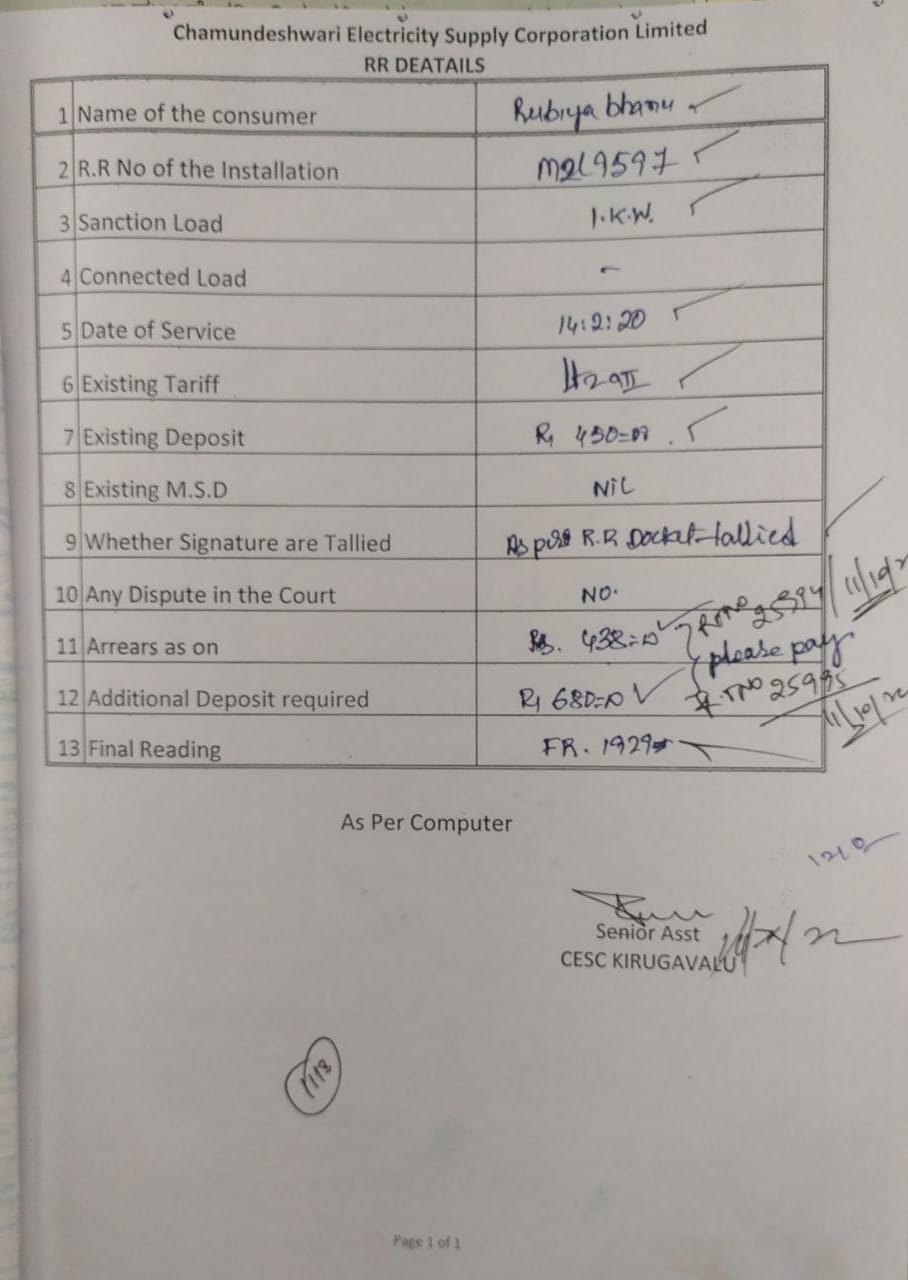 Chamundeshwari Electricity Supply Corporation Limited
RR DEATAILS
1 Name of the consumer Rubiya bhanu
2 R.R No of the Installation M2L9597
3 Sanction Load 1.K.W.
4 Connected Load -
5 Date of Service 14:2:20
6 Existing Tariff
7 Existing Deposit 450=00.
8 Existing M.S.D NIL
9 Whether Signature are Tallied As per R.R Docket tallied
10 Any Dispute in the Court NO.
11 Arrears as on Rs. 438=00
please pay
12 Additional Deposit required 680=00
13 Final Reading FR. 1929
As Per Computer
Senior Asst
CESC KIRUGAVALU
Page 1 of 1